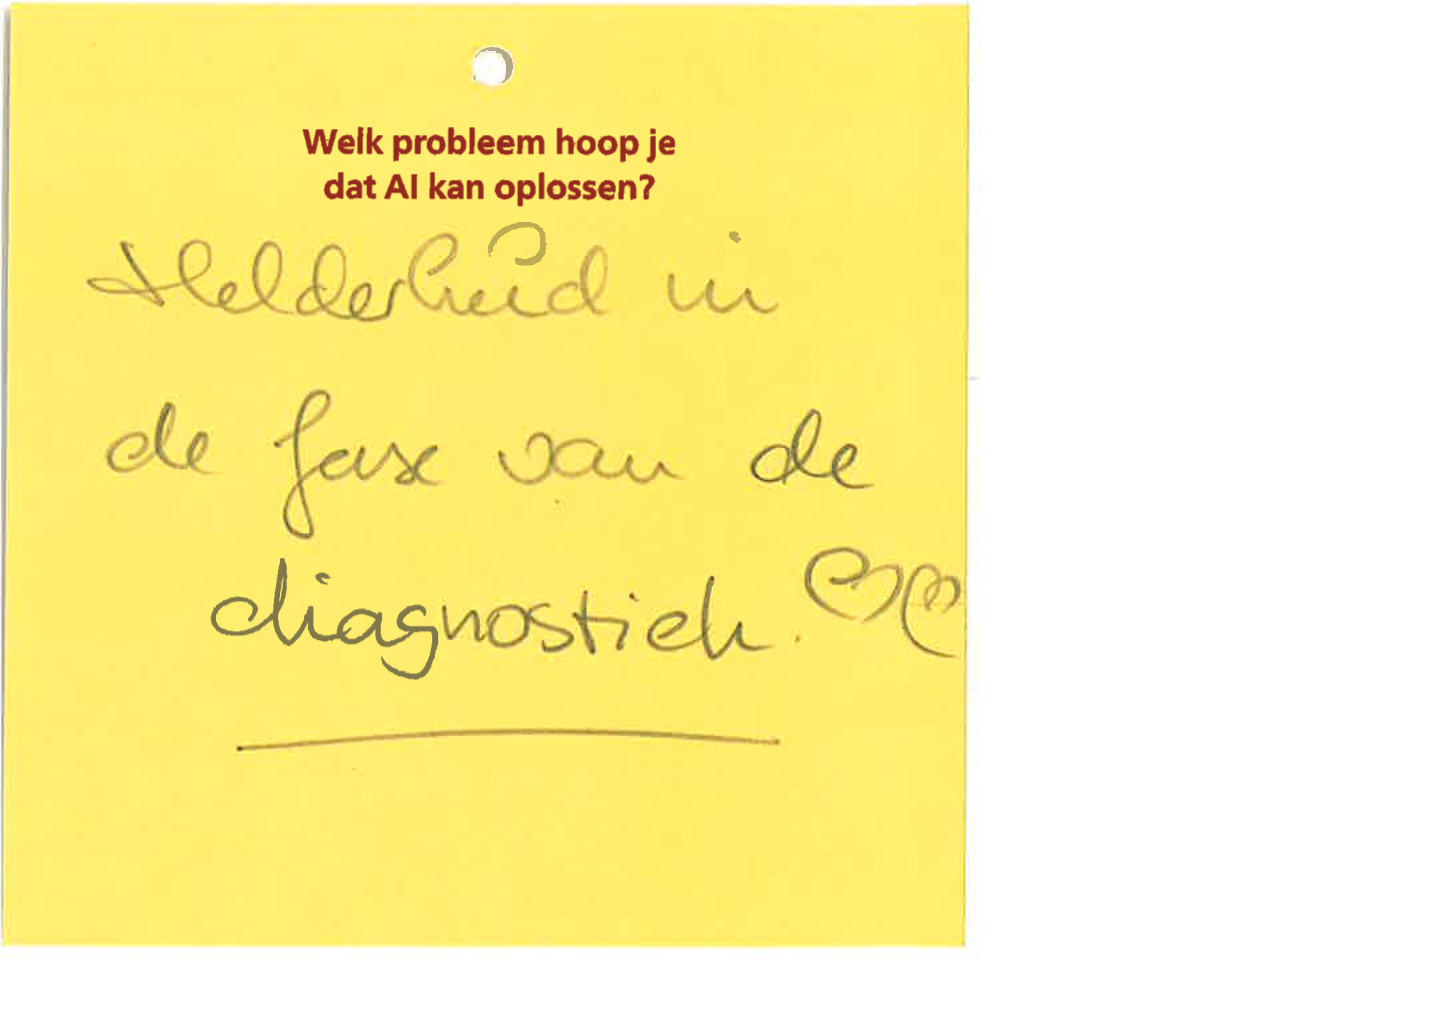 Welk probleem hoop je
dat AI kan oplossen?
Helderheid in
de fase van de
diagnostiek.